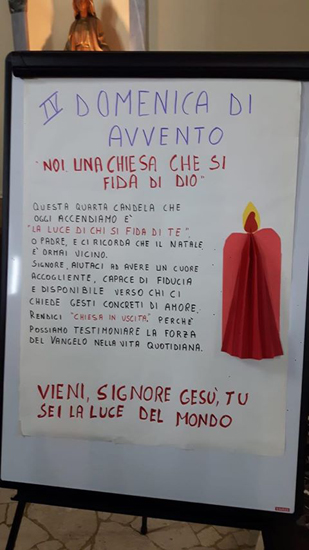 IV DOMENICA DI
AVVENTO
"NOI UNA CHIESA CHE SI
FIDA DI DIO"
QUESTA QUARTA CANDELA CHE
OGGI ACCENDIAMO E'
"LA LUCE DI CHI SI FIDA DI TE"
O PADRE, E CI RICORDA CHE IL NATALE
E' ORMAI VICINO.
SIGNORE, AIUTACI AD AVERE UN CUORE
ACCOGLIENTE, CAPACE DI FIDUCIA
E DISPONIBILE VERSO CHI CI
CHIEDE GESTI CONCRETI DI AMORE.
RENDICI "CHIESA IN USCITA" PERCHÈ
POSSIAMO TESTIMONIARE LA FORZA
DEL VANGELO NELLA VITA QUOTIDIANA.
VIENI, SIGNORE GESÙ, TU
SEI LA LUCE DEL MONDO